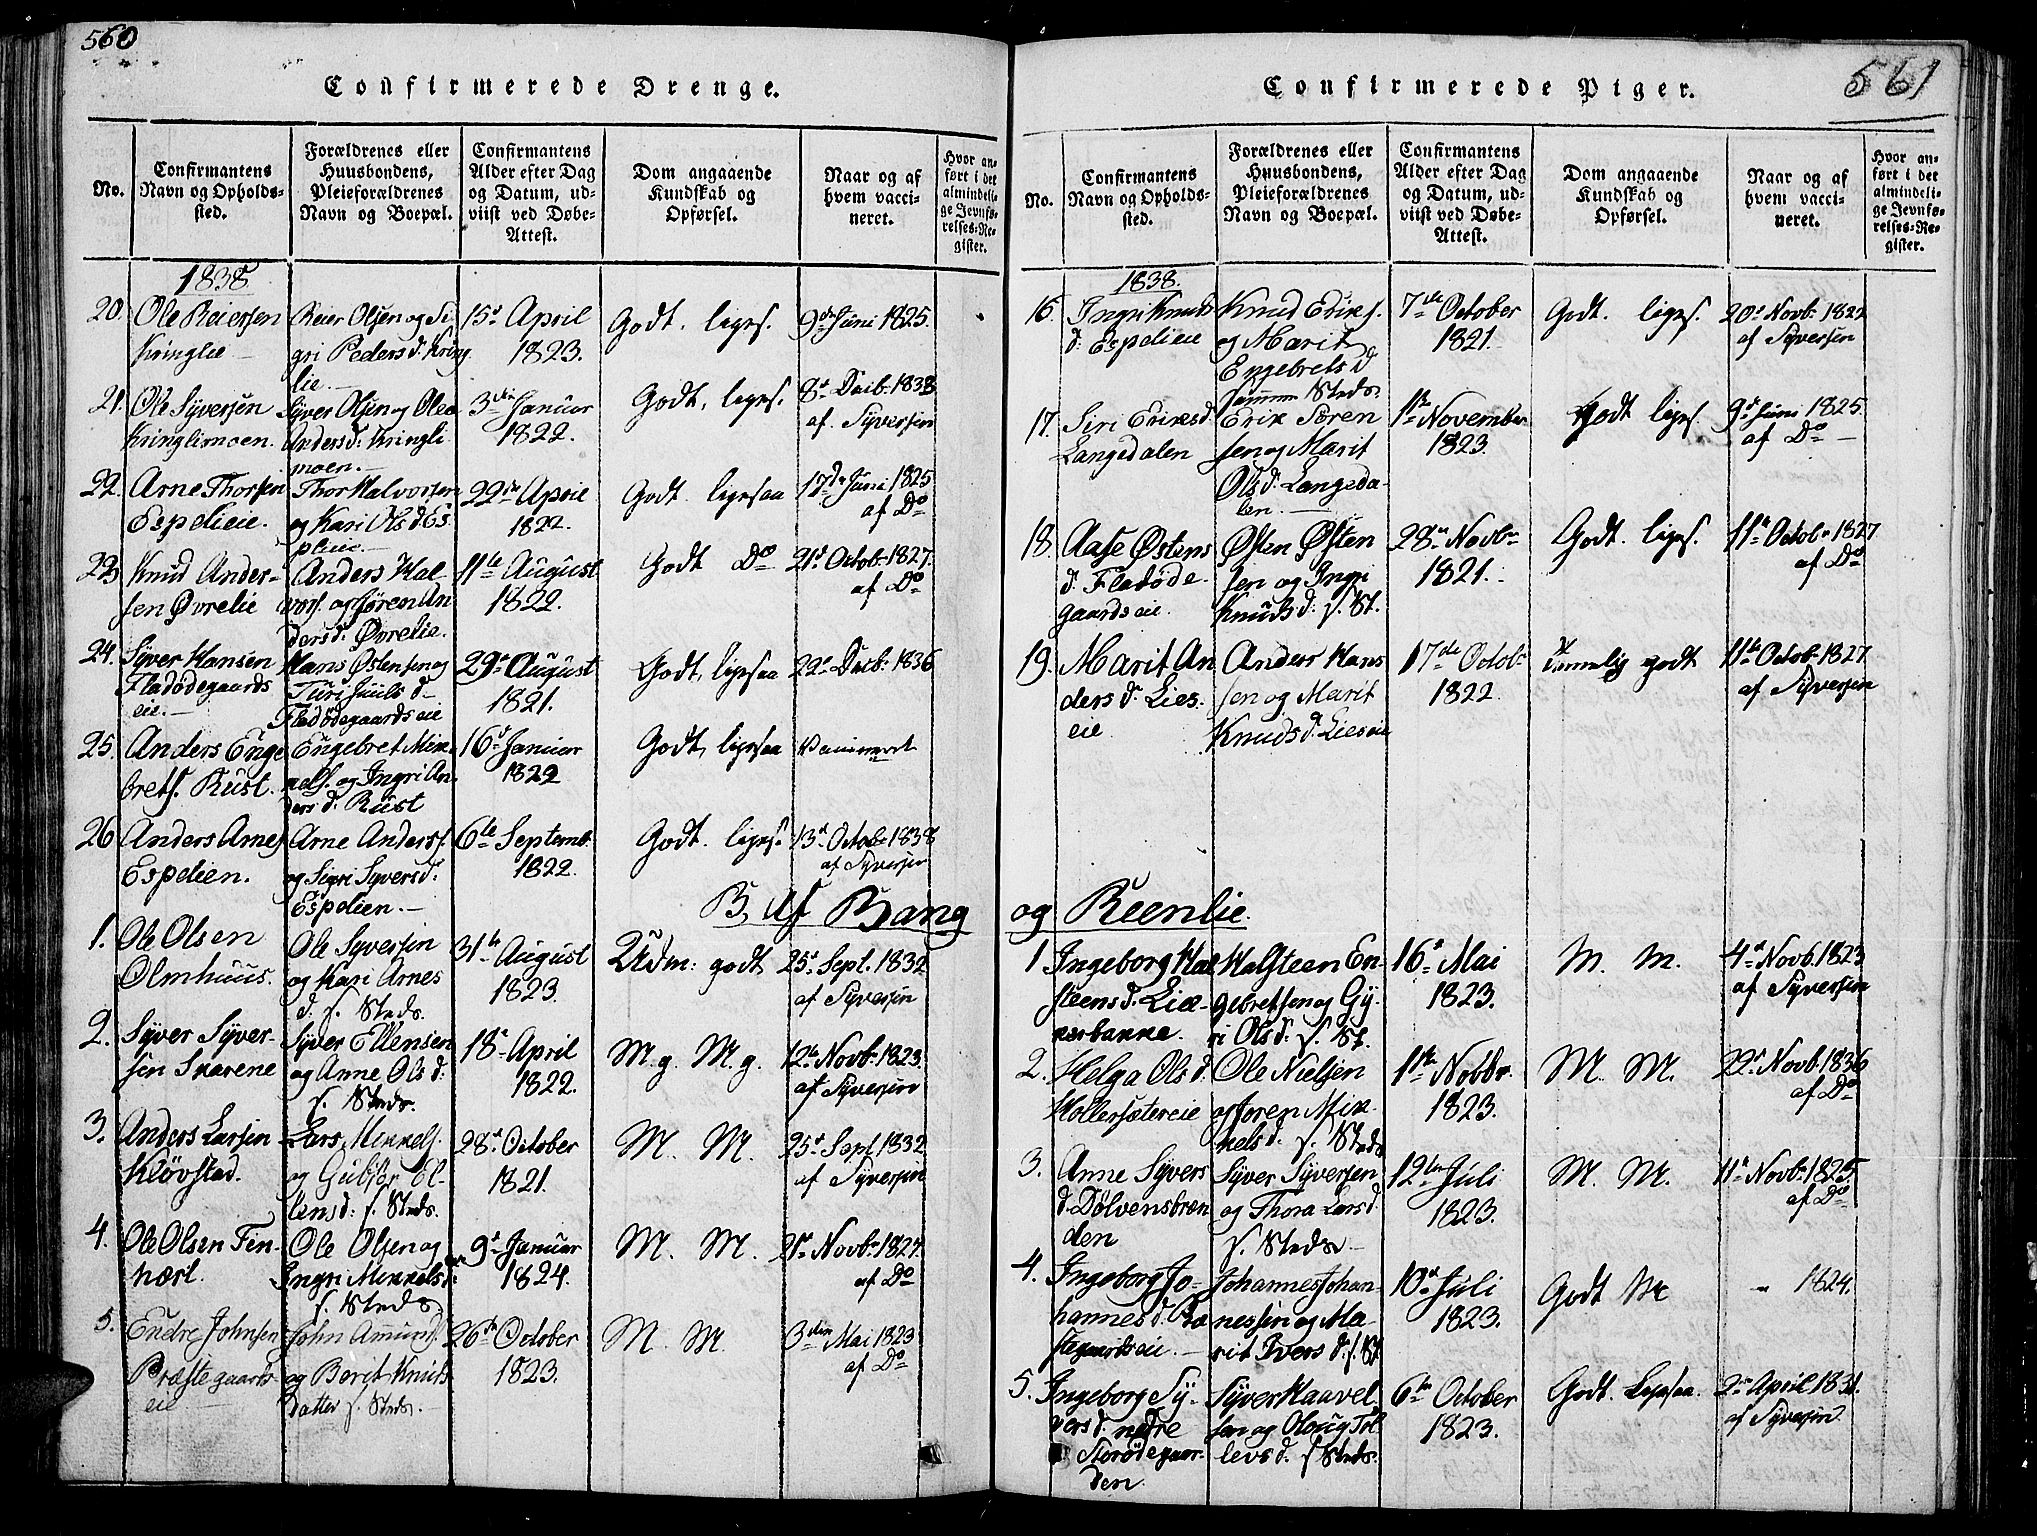 560
Confirmerede Drenge.
No.
Confirmantens
Navn og Opholds-
sted.
Forældrenes eller
Huusbondens,
Pleieforældrenes
Navn og Boepæl.
Confirmantens
Alder efter Dag
og Datum, ud-
viist ved Døbe-
Attest.
Dom angaaende
Kundskab og
Opførsel.
Naar og af
hvem vacci-
neret.
Hvor an-
ført i det
almindeli-
ge Jevnfø-
relses-Re-
gister.
1838
20. Ole Reiersen
Kringlie
Reier Olsen og Si
gri Pedersd. Kring
lie.
15d April
1823.
Godt. liges.
9de Juni 1825.
21. Ole Syversen
Kringlimoen.
Syver Olsen og Olea
Andersd: Kringli
moen.
3die Januar
1822.
Godt, liges.
8d Decbr 1838
af Syversen
22. Arne Thorsen
Espelieie.
Thor Halvorsen
og Kari Olsd Es
pleie.
22de April
1822.
Godt ligesaa
17de Juni 1825
af Do
23 Knud Ander-
sen Øvrelie
Anders Hal
vors. og Jøren An
dersd: Øvrelie.
11te August
1822.
Godt Do
21d Octobr 1827.
af Do
24. Syver Hansen
Fladødegaards
eie.
Hans Østensen og
Turi Juuls d
Fladødegaards eie
29d August
1821.
Godt, ligesaa
22d Decbr 1836
25. Anders Enge
brets. Rust.
Engebret Mik
kels. og Ingri An
ders d. Rust
16d Januar
1822
Godt, ligesaa
Vaccineret
26 Anders Arnes
Espelien.
Arne Anders.
og Sigri Syversd:
Espelien.
6te Septembr
1822.
Godt. liges.
13d Octobr 1838
af Syversen
B, af Bang
1. Ole Olsen
Olmhuus.
Ole Syversen
og Kari Arnes
d. s. Steds.
31te August
1823.
Udm: godt
25d Sept. 1832
af Syversen
2. Syver Syver-
sen Skarene
Syver Ellensen
og Anne Olsd:
s. Steds.
18d April
1822.
M.g. M.g.
12te Novbr 1823.
af Syversen
3. Anders Larsen
Kløvstad.
Lars Mikkels.
og Gubjør El-
lensd: s. Steds.
28d October
1821.
M. M.
25d Sept 1832
af Syversen
4. Ole Olsen Fin-
hærl.
Ole Olsen og
Ingri Mikkelsd:
s. Steds
9d Januar
1824.
M. M.
21d Novbr 1827.
af Do
5. Endre Johnsen
Præstegaards
eie
John Amund.
og Berit Knuds
datter s. Steds.
26de October
1823.
M. M.
3die Mai 1823
af Do
561
Confirmerede Piger.
No.
Confirmantens
Navn og Opholds-
sted.
Forældrenes eller
Huusbondens,
Pleieforældrenes
Navn og Boepæl.
Confirmantens
Alder efter Dag
og Datum, ud-
viist ved Døbe-
Attest.
Dom angaaende
Kundskab og
Opførsel.
Naar og af
hvem vacci-
neret.
Hvor an-
ført i det
almindeli-
ge Jevnfø-
relses-Re-
gister.
1838.
16. Ingri Knuds
d: Espelieie
Knud Eriks.
og Marit
Engebretsd
Sammen Steds.
7de October
1821.
Godt. liges.
20d Novbr 1822
af Syversen
17. Siri Eriksd
Langedalen
Erik Soren
sen og Marit
Olsd. Langeda-
len.
1te November
1823.
Godt liges.
9d Juni 1825.
af Do
18. Aase Østens
d. Fladøde-
gaardseie
Østen Østen
sen og Ingri
Knudsd: s. St.
28d Novbr
1821.
Godt. liges.
11te Octobr 1827
af Do
19. Marit An
ders d. Lies-
eie
Anders Hans
sen og Marit
Knuds d. Lieseie
17de Octobr
1822
temmelig godt
11te Octobr 1827.
af Syversen
og Reenlie.
1 Ingeborg Hal
steens d. Liæ-
kerbakke.
Halsteen En-
gebretsen og Gy-
ri Olsd: s. St.
16d Mai
1823.
M. M.
4de Novb. 1823
af Syversen
2. Helga Ols d.
Hollersætereie
Ole Nielsen
og Joren Mik-
kelsd. s. Steds
1te Nobbr.
1823.
M. M.
22d Novb. 1836
af Do
3. Anne Syvers
d. Dølvensbræn
den
Syver Syversen
og Thora Larsd.
s. Steds.
12te Juli
1823.
M. M.
11te Novbr 1825.
af Do
4. Ingeborg Jo-
hannesd. Præ
stegaardseie.
Johannes Johan-
nessen og Ma-
rit Ivers d. s. St.
10d Juli
1823.
Godt M
1824.
5. Ingeborg Sy-
versd: nedre
Storødegaar-
den.
Syver Haavel
sen og Oloug Tol
levsd. s Steds.
6te October
1823.
Godt. Ligesaa.
2d April 1831.
af Syversen